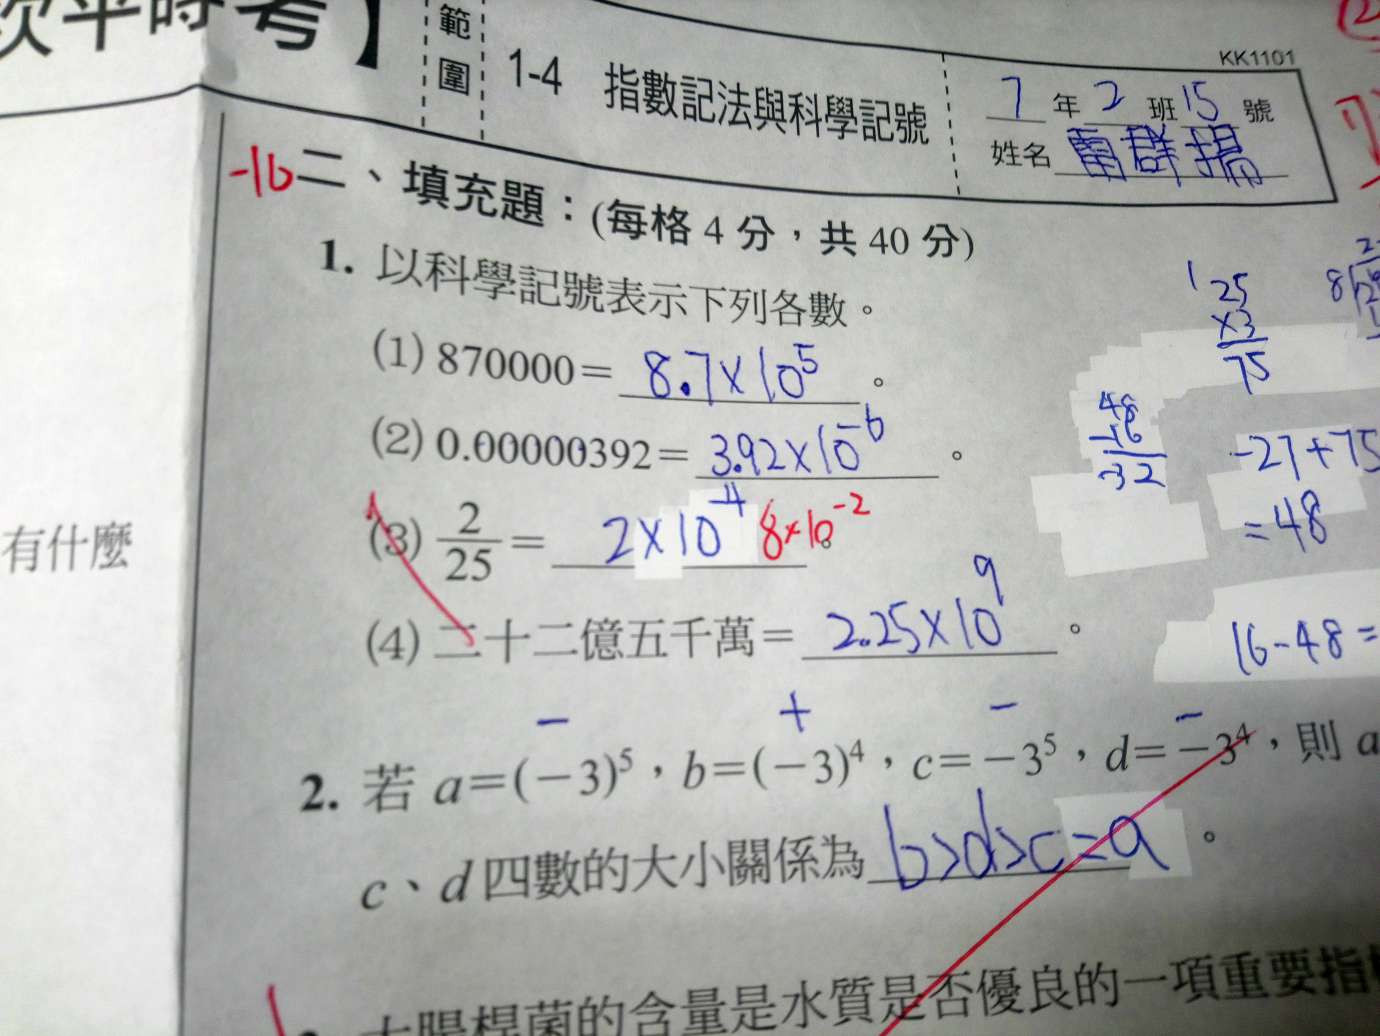 次平時考】
範圍
1-4 指數記法與科學記號
KK1101
7年2班15號
姓名
-16
二、填充題：(每格4分，共40分)
1. 以科學記號表示下列各數。
(1) 870000＝8.7×10⁵。
(2) 0.00000392＝3.92×10⁻⁶。
(3) 2/25＝2×10⁻⁴ 8×10⁻²。
(4) 二十二億五千萬＝2.25×10⁹。
－ ＋ － －
2. 若 a＝(－3)⁵，b＝(－3)⁴，c＝－3⁵，d＝－3⁴，則 a
c、d 四數的大小關係為 b>d>c=a。
大腸桿菌的含量是水質是否優良的一項重要指
有什麼
25
×3
75
48
-16
-32
-27+75
=48
16-48=